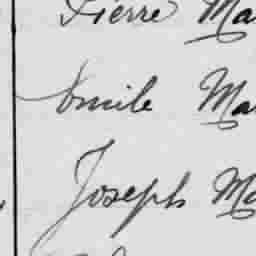 Pierre Ma
Emile Ma
Joseph Ma